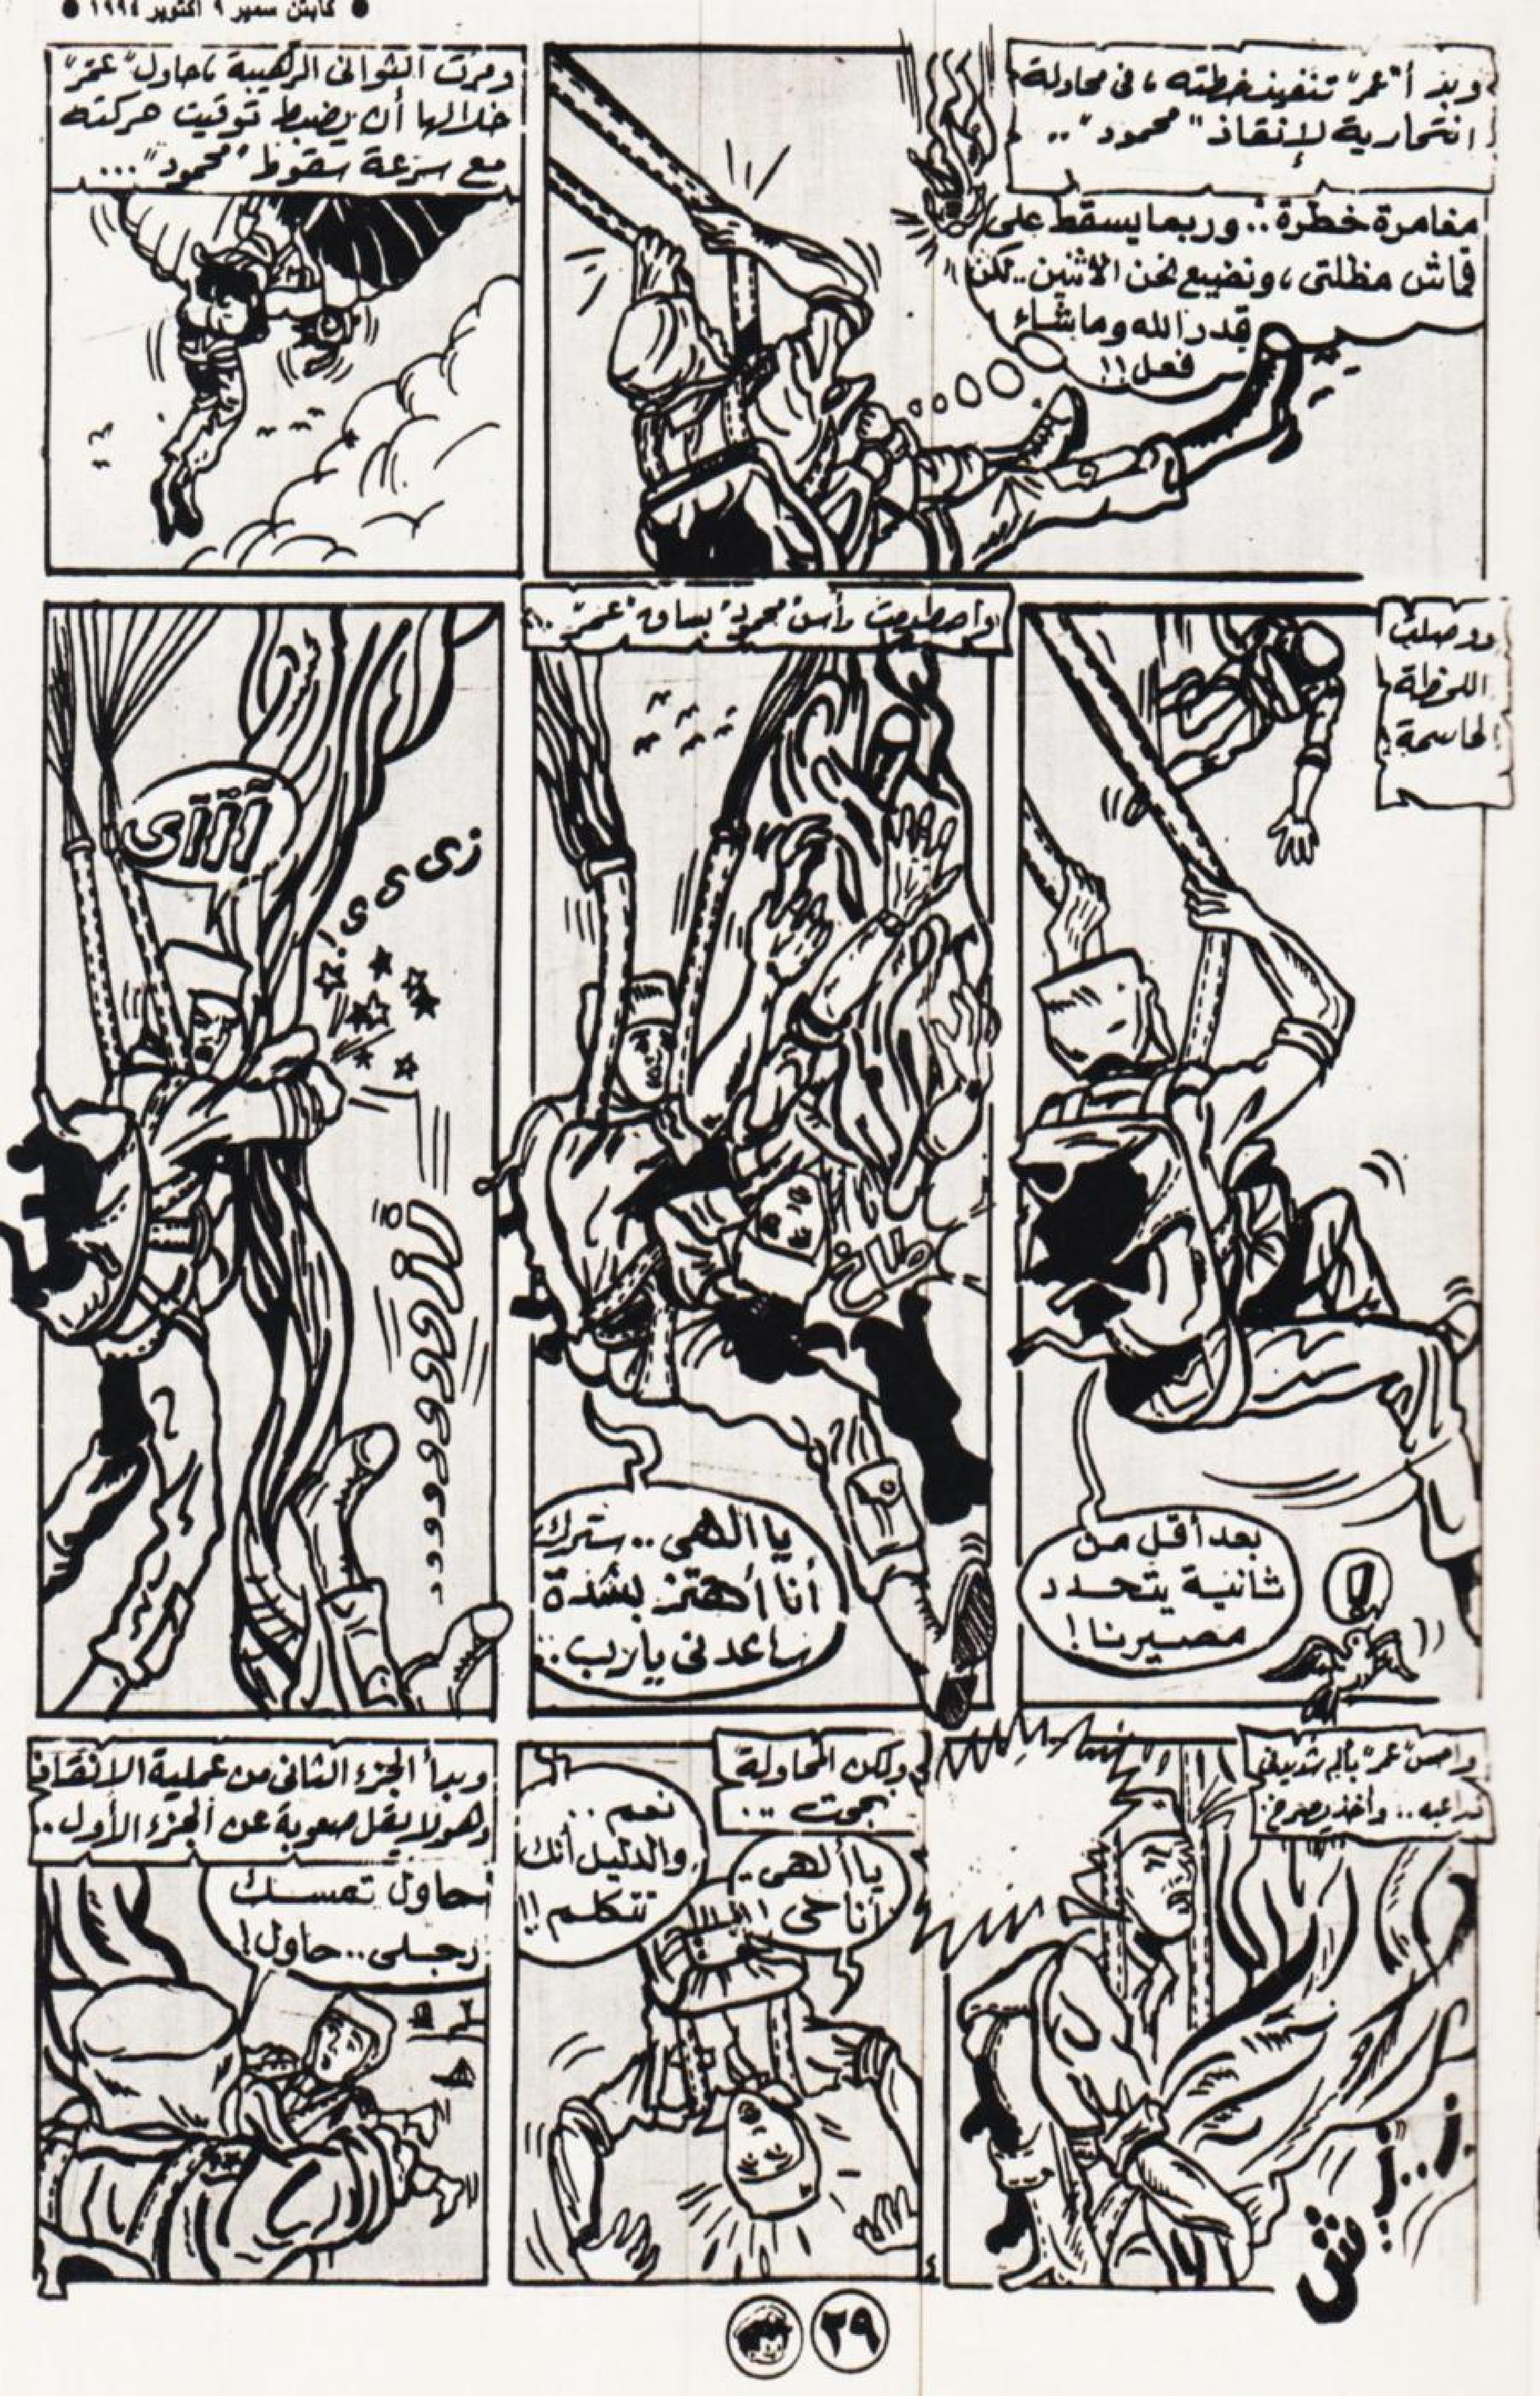 ● كابتن سمير ٩ أكتوبر ١٩٩٤ ●
وبدأ "عمر" تنفيذ خطته ، فى محاولة
انتحارية لإنقاذ "محمود" ..
مغامرة خطرة .. وربما يسقط على
قماش مظلتى ، ونضيع نحن الاثنين .. لكن
قدر الله وما شاء
فعل !!
ومرت الثوانى الرهيبة ، حاول "عمر"
خلالها أن يضبط توقيت حركته
مع سرعة سقوط "محمود" ...
ووصلت
اللحظة
الحاسمة !
بعد أقل من
ثانية يتحدد
مصيرنا !
!
واصطدمت رأس "محمود" بساق "عمر" ..
طاخ
يا الهى .. سترك
أنا أهتز بشدة
ساعدنى يا رب ..
آآآى
زى ى ى
وأحس "عمر" بألم شديد فى
ذراعيه .. وأخذ يصرخ :
ولكن المحاولة
نجحت ..
يا ألهى ..
أنا حى !!
نعم ..
والدليل أنك
تتكلم !!
وبدأ الجزء الثانى من عملية الإنقاذ
وهو لا يقل صعوبة عن الجزء الأول ..
حاول تمسك
رجلى .. حاول !
٢٩